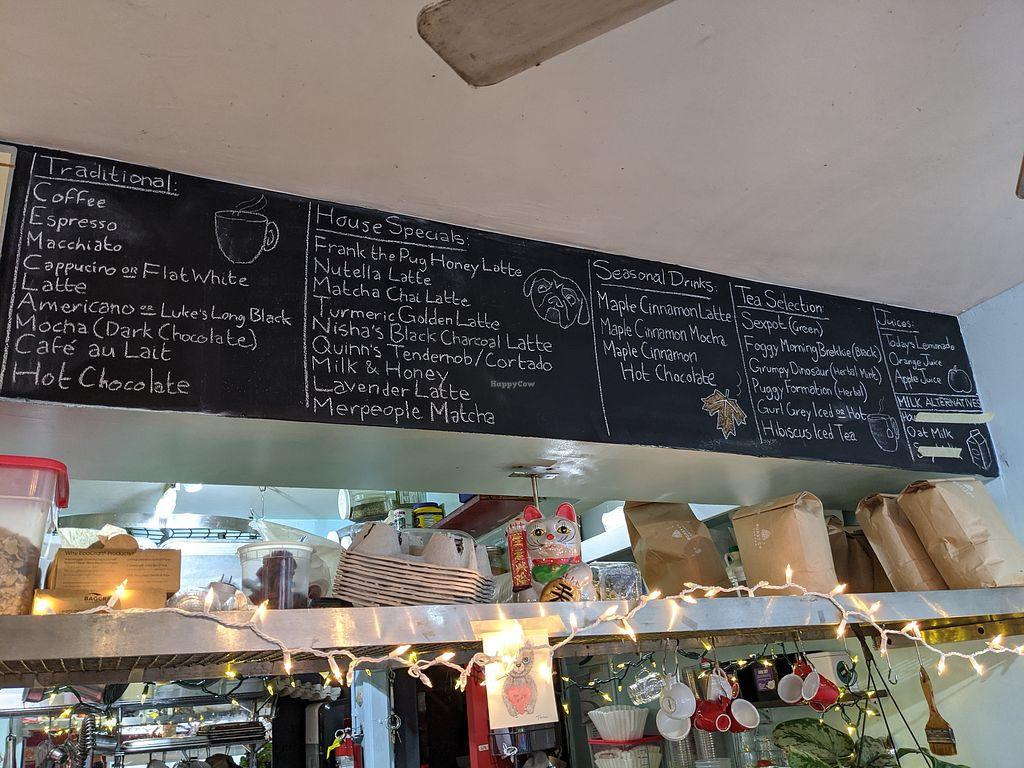 Traditional:
Coffee
Espresso
Macchiato
Cappucino OR Flat White
Latte
Americano OR Luke's Long Black
Mocha (Dark Chocolate)
Café au Lait
Hot Chocolate
House Specials:
Frank the Pug Honey Latte
Nutella Latte
Matcha Chai Latte
Turmeric Golden Latte
Nisha's Black Charcoal Latte
Quinn's Tendernob/Cortado
Milk & Honey
Lavender Latte
Merpeople Matcha
HappyCow
Seasonal Drinks:
Maple Cinnamon Latte
Maple Cinnamon Mocha
Maple Cinnamon
Hot Chocolate
Tea Selection:
Sexpot (Green)
Foggy Morning Brekkie (Black)
Grumpy Dinosaur (Herbal Mint)
Puggy Formation (Herbal)
Gurl Grey Iced OR Hot
Hibiscus Iced Tea
Juices:
Today's Lemonade
Orange Juice
Apple Juice
MILK ALTERNATIVES
Oat Milk